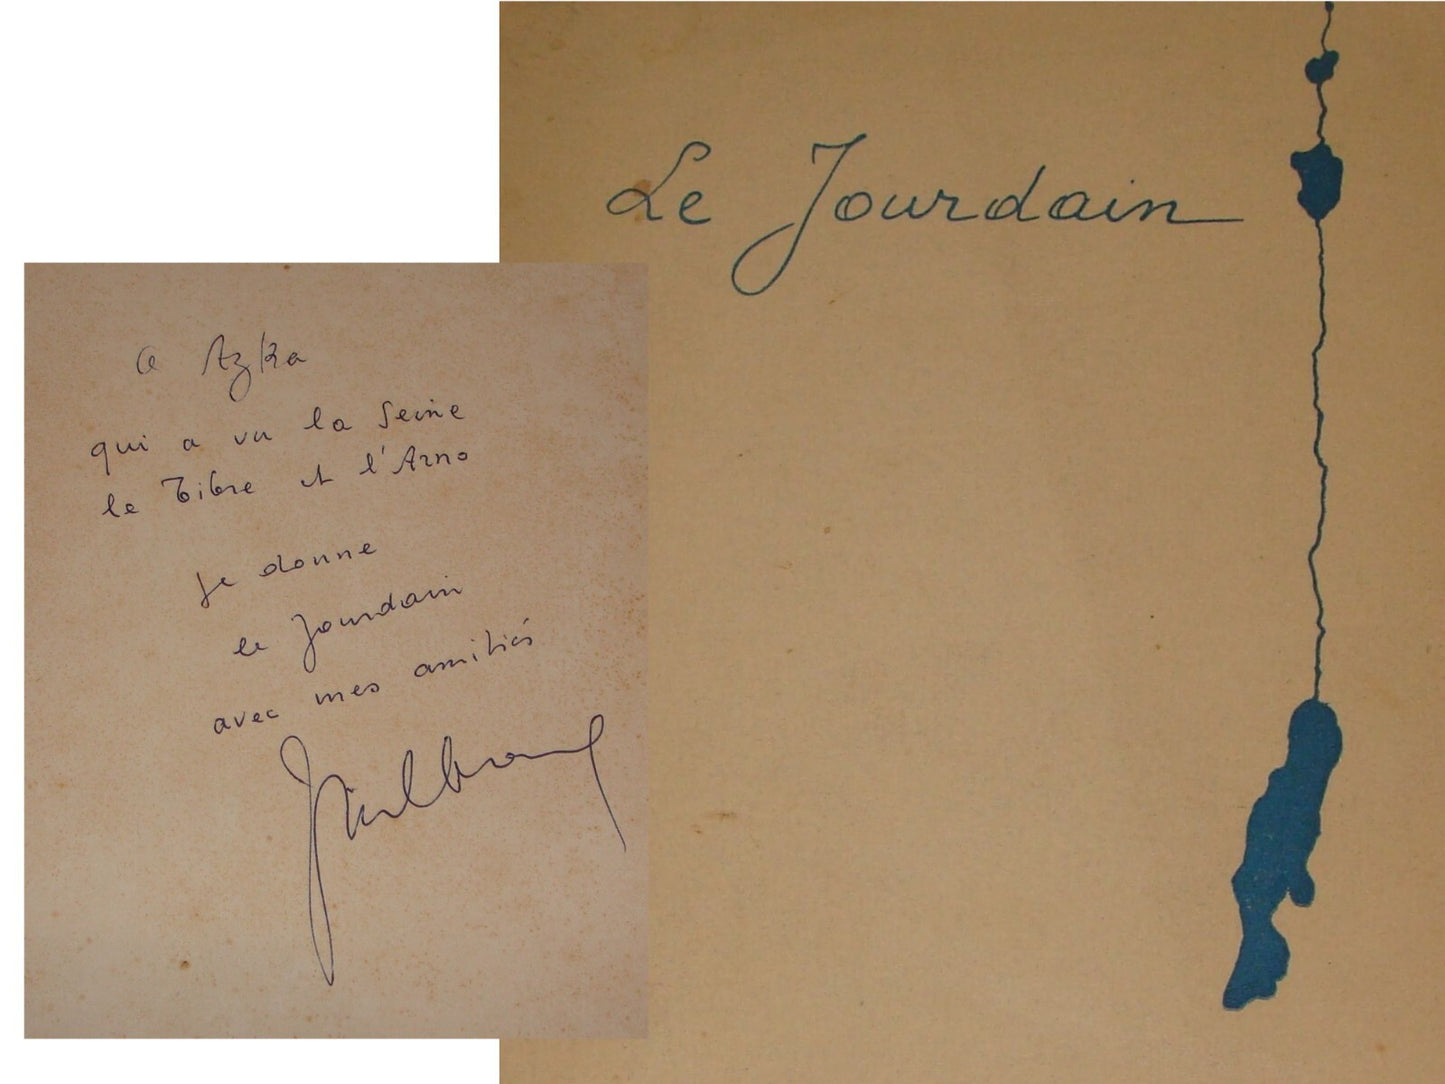 Le Jourdain
a Azka
qui a vu la Seine
le Tibre et l'Arno
je donne
le Jourdain
avec mes amitiés